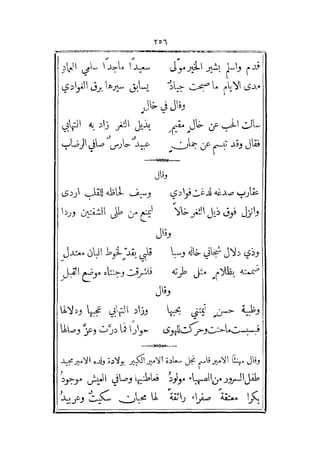 ٢٥٦
قدم واسلم بشير الخير مولى سعيدًا ماجدًا سامي العمادِ
مدى الايام ما صبحت جيادٌ يسابق سيرها برق الغوادي
وقال في خالٍ
سالت الحب عن خالٍ مقيمٍ بذيل الثغر زاد به التهاني
فقال وقد تبسم عن جمانٍ عبيدٌ حارسٌ صافي الرضاب
وقال
عقارب صدغه لدغت فوادي وسيف لحاظه للقلب اردى
وانزل فوق ذيل الثغر خالًا ليمنع من طلى الشفتين وردا
وقال
وذي دلال شجاني خاله وسبا قلبي بقدٍّ كخوط البان معتدلِ
ضممته بظلامٍ مثل طرته فاشرقت وجنتاه موضع القبلِ
وقال
وظبية حسنٍ تيمتني بحبها وزاد التهاني عجبها ودلالها
فبسبست ماحنت وحركت للهوى حوارًا فما درَّت وعزَّ وصالها
وقال مهنئًا الامير قاسم نجل سعادة الامير الكبير بولادة ولده الامير مجيد
طفل السرور من الصهباء مولودُ فعاطنيها وصافي العيش موجودُ
بكرا معتقةً صفراء رائقةً لها محبان سكيتٌ وعربيدُ